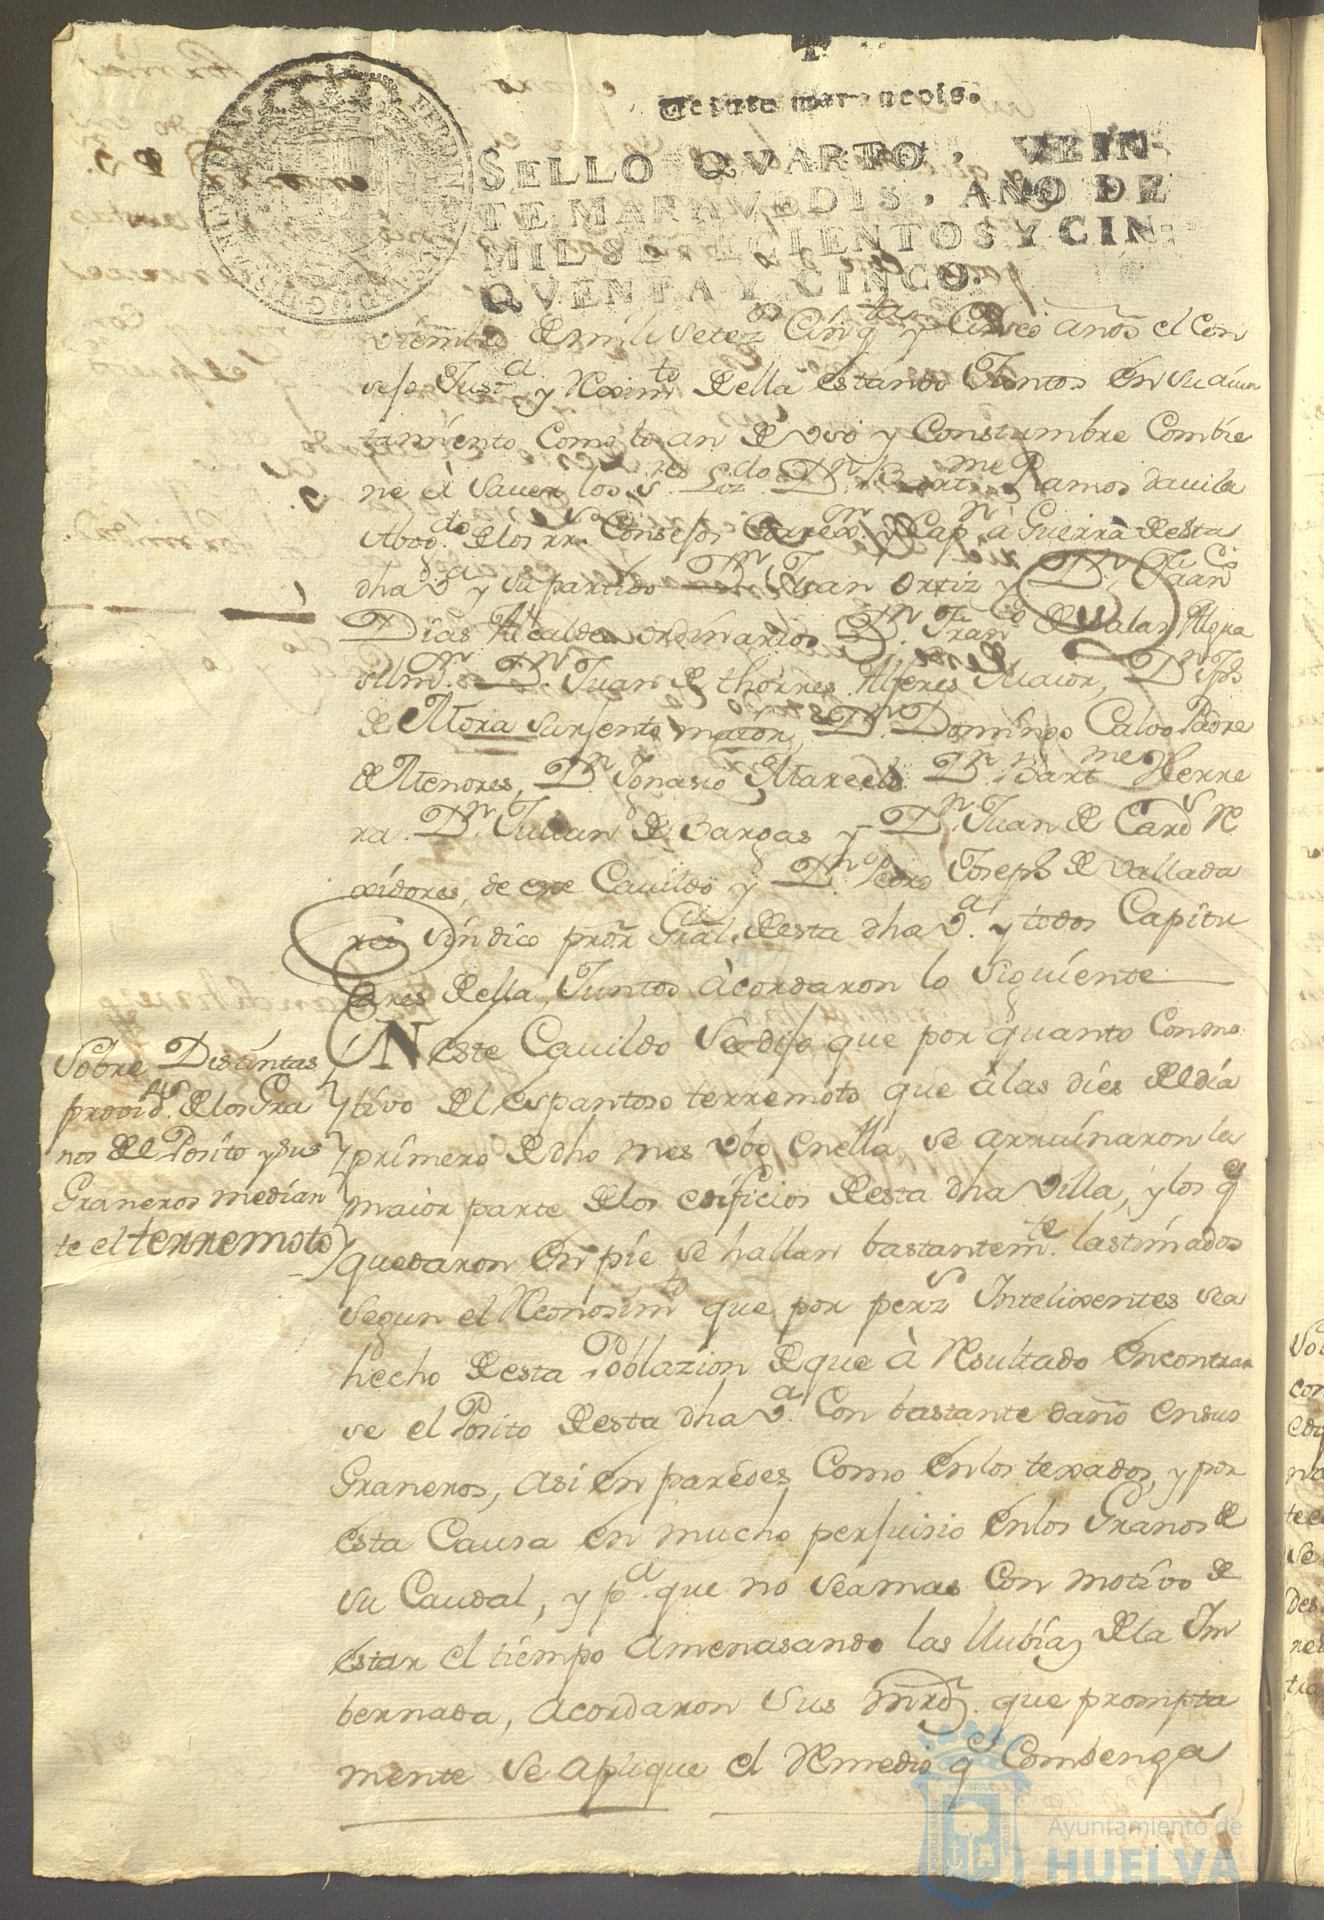 SELLO QVARTO, VEIN-
TE MARAVEDIS, AÑO DE
MIL SETECIENTOS Y CIN-
QVENTA Y CINCO.
viembre de mill setez.os Cinq.ta y Cinco años el Con
sejo Just.a y Rexim.to della estando Juntos en su aiun
tamiento como lo an de uso y Constumbre Combie
ne à saver los s.res Liz.do D.n Bart.me Ramos davila
Abog.do de los rr.s Consejos Corre.or y Cap.n à Guerra desta
dha v.a y su partido D.n Juan Ortiz y D.n Fran.co
Dias Alcaldes ordinarios D.n Fran.co de Salas Algua
sil m.or D.n Juan de thorres Alferes Maior, D.n Jph
de Mora sarjento maior, D.n Domingo Calvo Padre
de Menores, D.n Ignasio Marcelo D.n Bart.me Herre
ra D.n Julian de Bargas y D.n Juan de Card.s Re
xidores, de este Cavildo y D.n Pedro Joseph de Vallada
res síndico pror Gral. desta dha v.a y todos Capitu
lares della Juntos àcordaron lo siguiente
EN este Cavildo se dijo que por quanto Con mo
Sobre Distintas
provid.as de los Gra
nos del Posito y sus
Graneros median
te el terremoto
tivo del espantoso terremoto que à las dies del día
primero de dho mes ubo en ella, se arruinaron la
maior parte de los edificios desta dha Villa, y los q.e
quedaron en pie se hallan bastantem.te lastimados
segun el Reconosim.to que por perz.s Intelixentes se a
hecho desta Poblazion de que à Resultado encontrar
se el Posito desta dha v.a con bastante daño en sus
Graneros, asi en paredes como en los texados, y por
esta Causa en mucho perjuisio en los Granos de
su Caudal, y p.a que no sea mas con motivo de
estar el tiempo amenasando las llubias de la In
bernada, acordaron sus mrds. que prompta
mente se aplique el Remedio q.e Combenga
Ayuntamiento de
HUELVA